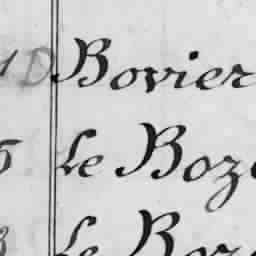 1 D Bovier
5 Le Boz
Le Boz